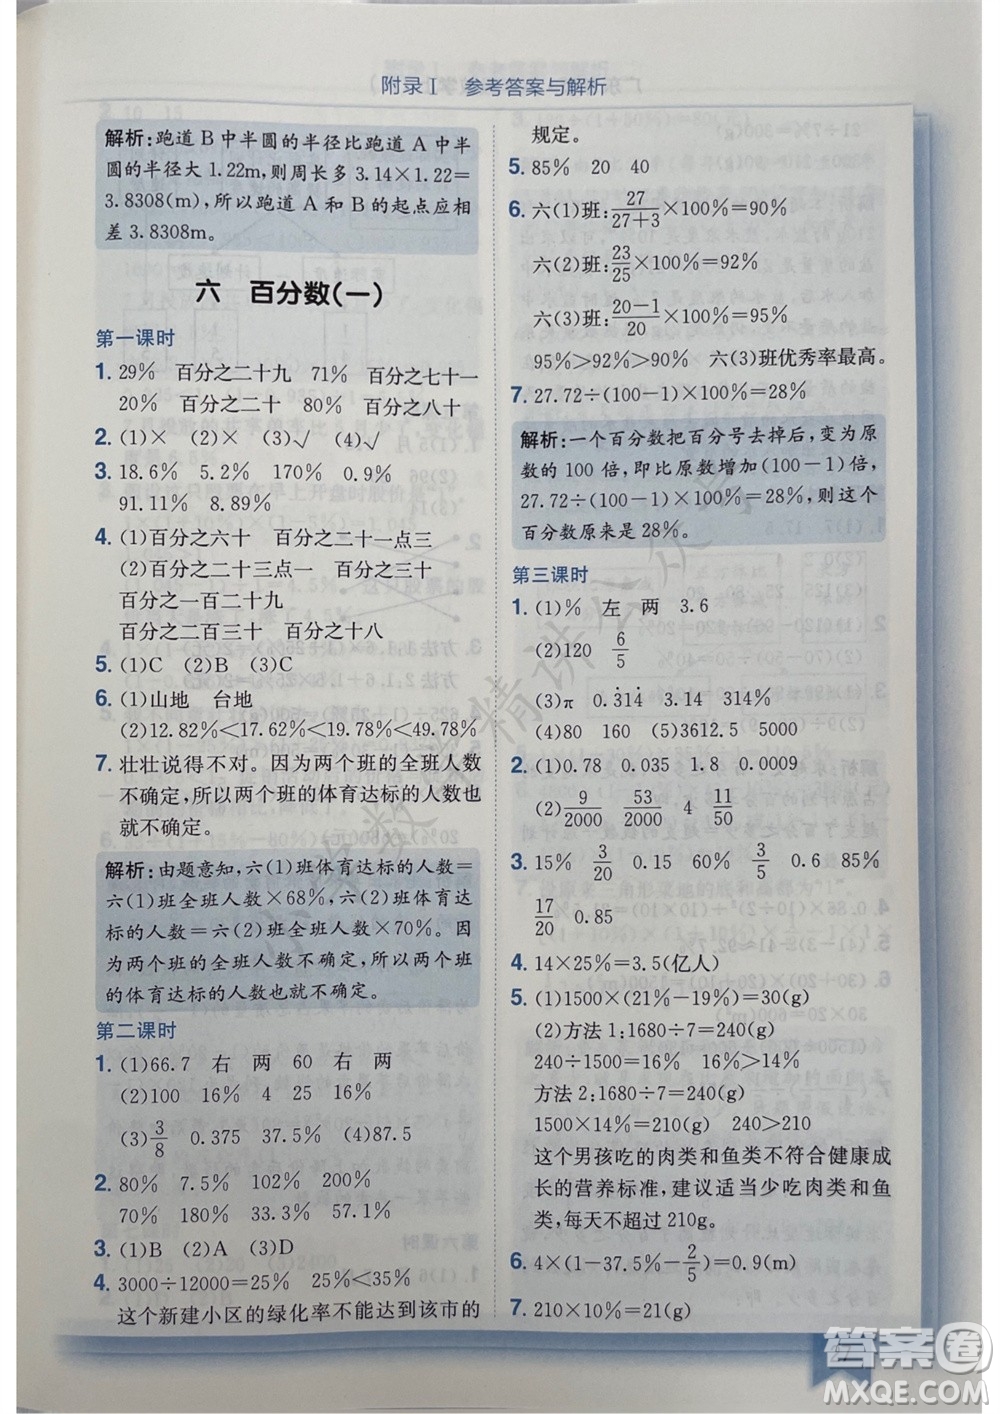 附录Ⅰ 参考答案与解析
解析:跑道 B 中半圆的半径比跑道 A 中半
圆的半径大 1.22m,则周长多 3.14×1.22=
3.8308(m),所以跑道 A 和 B 的起点应相
差 3.8308m。
六 百分数(一)
第一课时
1. 29% 百分之二十九 71% 百分之七十一
20% 百分之二十 80% 百分之八十
2. (1)× (2)× (3)√ (4)√
3. 18.6% 5.2% 170% 0.9%
91.11% 8.89%
4. (1)百分之六十 百分之二十一点三
(2)百分之二十三点一 百分之百
百分之一百二十九
百分之二百三十 百分之十八
5. (1)C (2)B (3)C
6. (1)山地 台地
(2)12.82%<17.62%<19.78%<49.78%
7. 壮壮说得不对。因为两个班的全班人数
不确定,所以两个班的体育达标的人数也
就不确定。
解析:由题意知,六(1)班体育达标的人数=
六(1)班全班人数×68%,六(2)班体育达
标的人数=六(2)班全班人数×70%。因
为两个班的全班人数不确定,所以两个班
的体育达标的人数也就不确定。
第二课时
1. (1)66.7 右 两 60 右 两
(2)100 16% 4 25 16%
(3)3/8 0.375 37.5% (4)87.5
2. 80% 7.5% 102% 135%
70% 180% 33.3% 57.1%
3. (1)B (2)A (3)D
4. 3000÷12000=25% 25%<35%
这个新建小区的绿化率不能达到该市的
规定。
5. 85% 20 40
6. 六(1)班:27/(27+3)×100%=90%
六(2)班:23/25×100%=92%
六(3)班:(20-1)/20×100%=95%
95%>92%>90% 六(3)班优秀率最高。
7. 27.72÷(100-1)×100%=28%
解析:一个百分数把百分号去掉后,变为原
数的 100 倍,即比原数增加(100-1)倍,
27.72÷(100-1)×100%=28%,所以这个
百分数原来是 28%。
第三课时
1. (1)% 左 两 3.6
(2)120 6/5
(3)π 0.3̇14̇ 3.14 314%
(4)80 160 (5)3612.5 5000
2. (1)0.78 0.035 1.8 0.0009
(2)9/2000 53/2000 4 11/50
3. 15% 3/20 0.15 60% 3/5 0.6 85%
17/20 0.85
4. 14×25%=3.5(亿人)
5. (1)1500×(21%-19%)=30(g)
(2)方法 1:1680÷7=240(g)
240÷1500=16% 16%>14%
方法 2:1680÷7=240(g)
1500×14%=210(g) 240>210
这个男孩吃的肉类和鱼类不符合健康成
长的营养标准,建议适当少吃肉类和鱼
类,每天不超过 210g。
6. 4×(1-37.5%-2/5)=0.9(m)
7. 210×10%=21(g)
答案圈
MXQE.COM